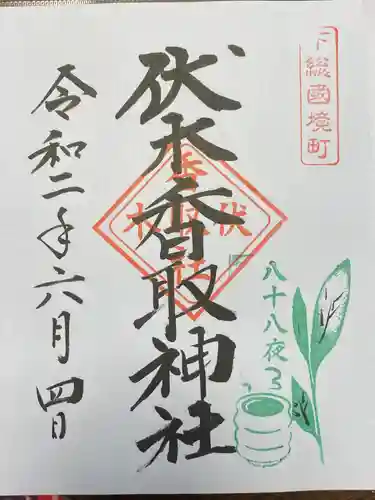 下總國境町
伏木香取神社
伏木
八十八夜
令和二年六月四日